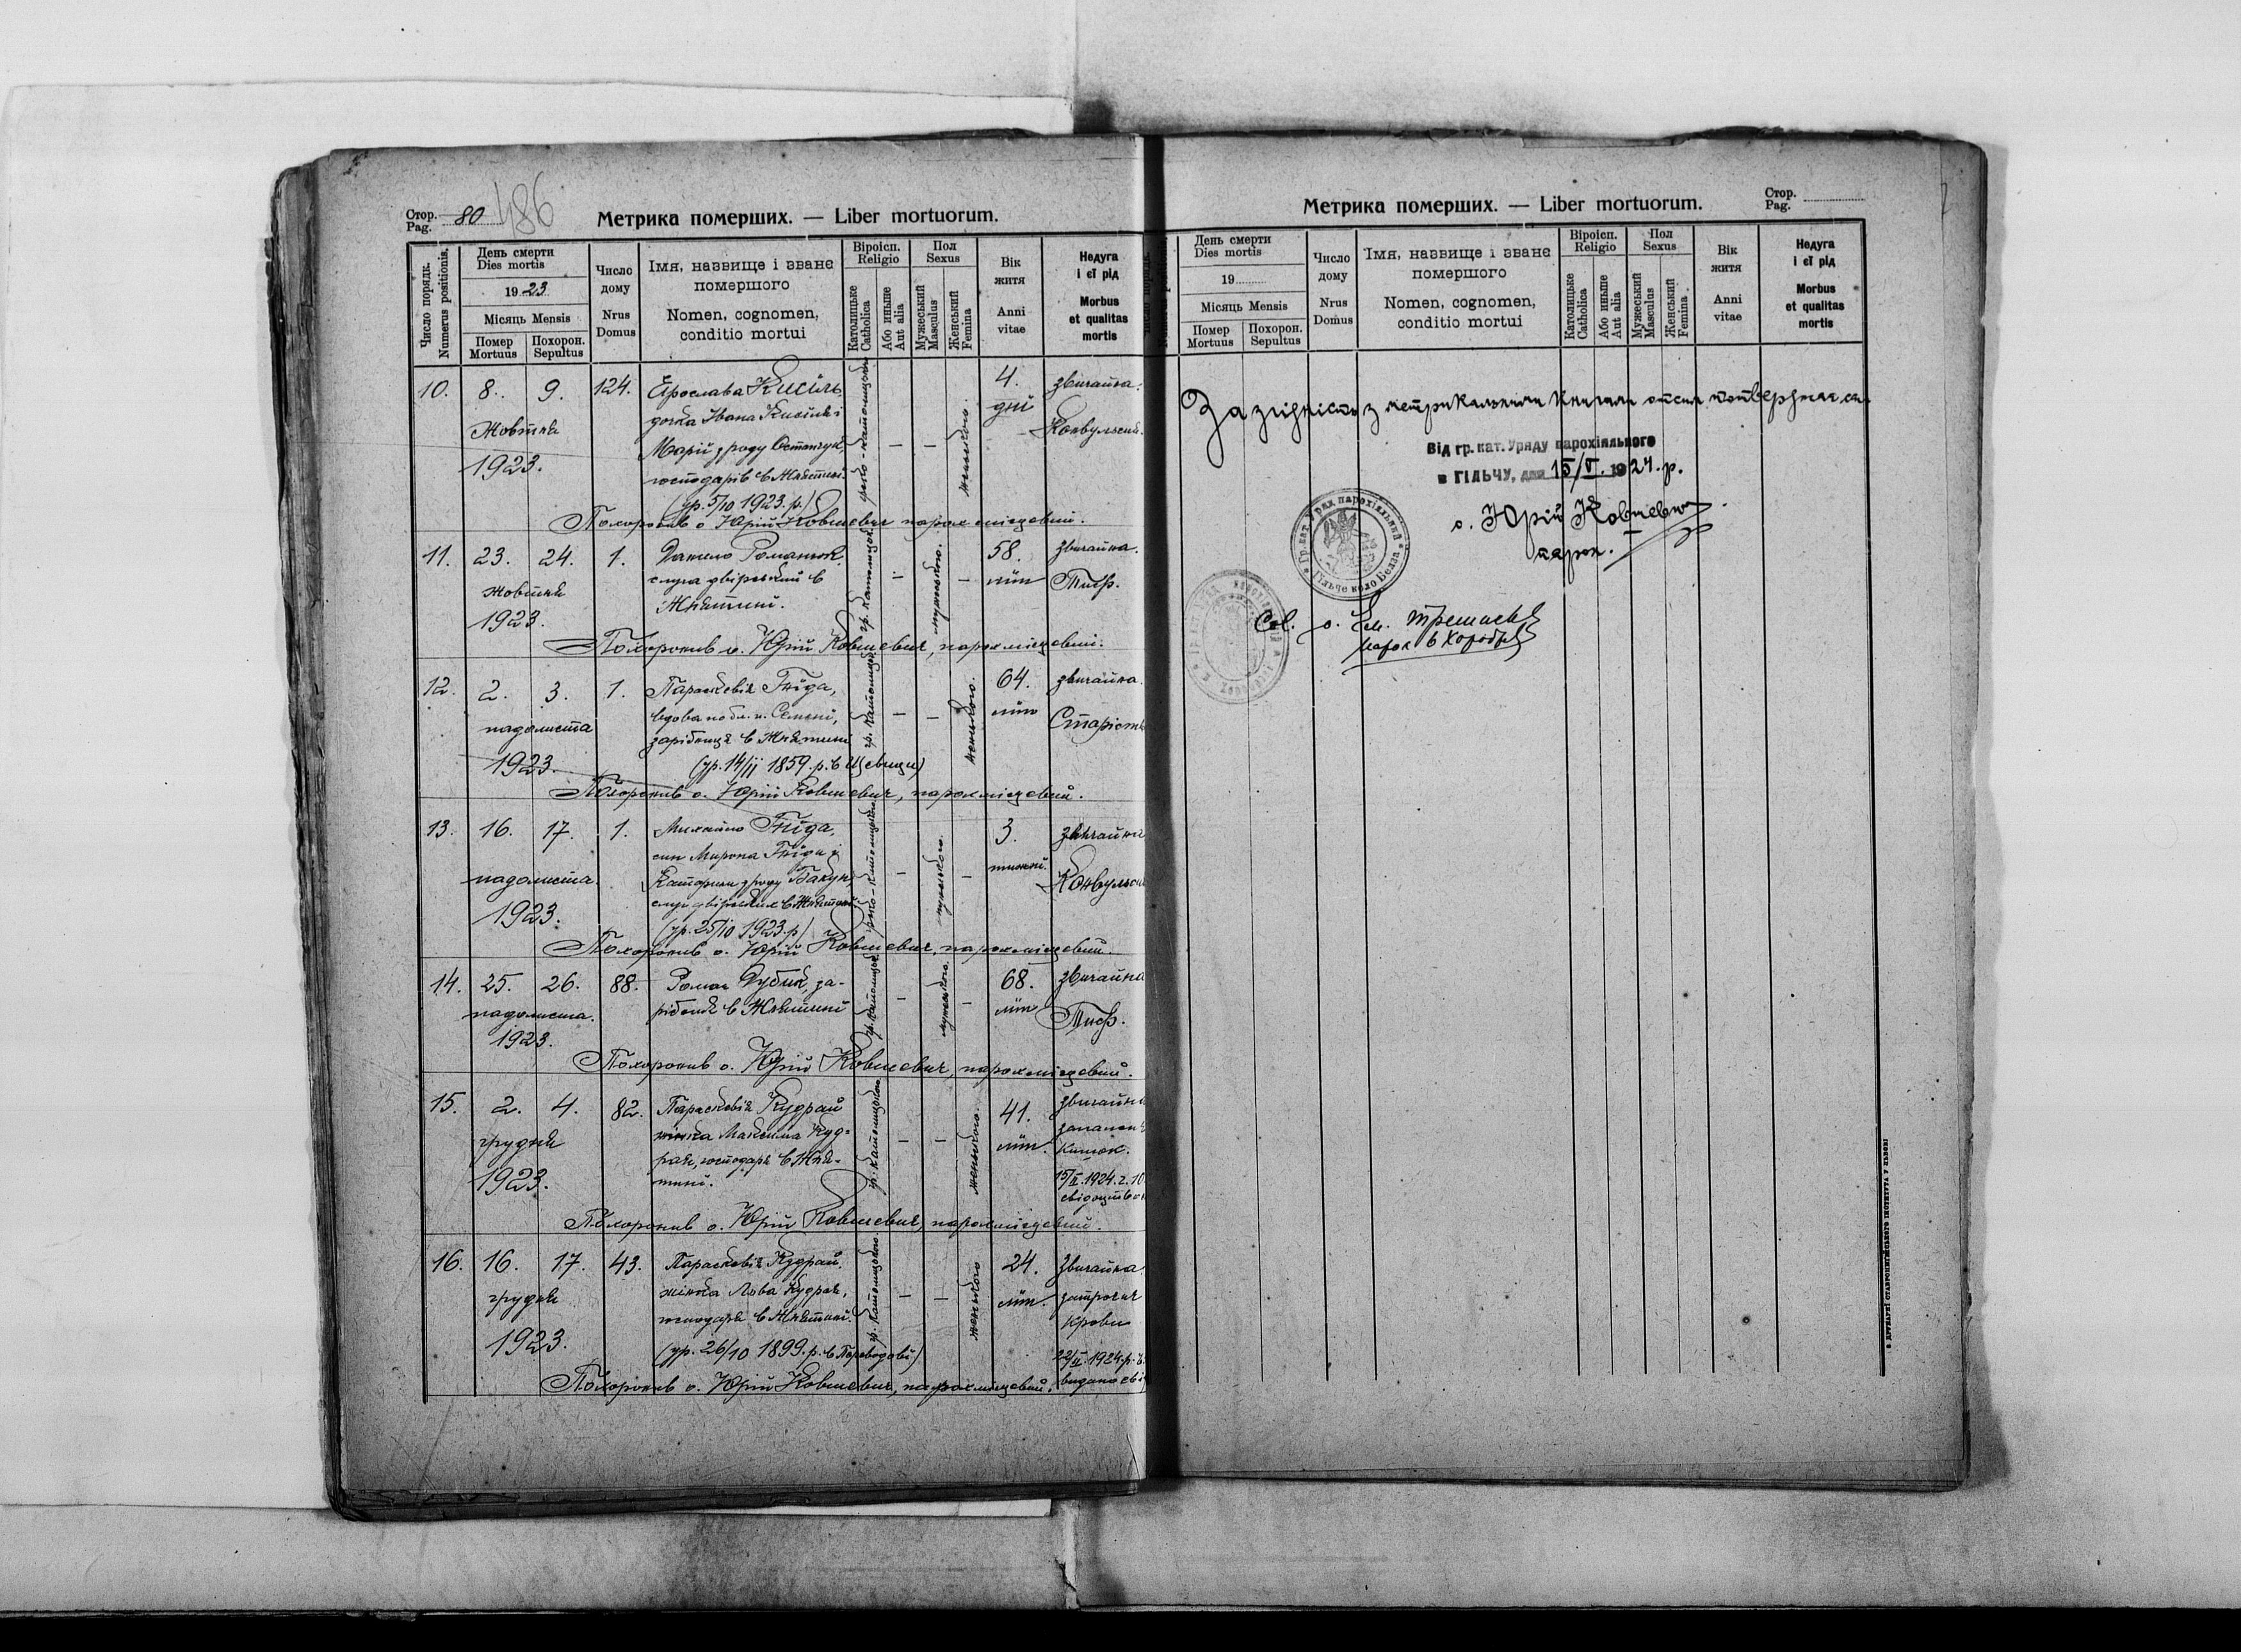 Стор. Pag. 80 486
Метрика померших. — Liber mortuorum.
Число порядк. Numerus positionis.
День смерти Dies mortis
1923
Місяць Mensis
Помер Mortuus
Похорон. Sepultus
Число дому Nrus Domus
Імя, назвище і зване померш​ого
Nomen, cognomen, conditio mortui
Віроісп. Religio
Католицьке Catholica
Або иньше Aut alia
Пол Sexus
Мужеський Masculus
Женський Femina
Вік житя Anni vitae
Недуга і єї рід
Morbus et qualitas mortis
10. 8. 9. 124. Ярослава Кисіль 4. звичайна.
дочка Івана Кисіля і дні
Жовтня Марії з роду Конвульсиї.
1923. господарів в Жнятині
(ур. 5/10 1923. р.)
греко-католицьке — — женського.
Похоронив о. Юрій Ковшевич парох місцевий.
11. 23. 24. 1. Данило Романюк 58. звичайна.
жовтня слуга двірський в літ Тиф.
1923. Жнятині.
гр. католицьке — мужеського. —
Похоронив о. Юрій Ковшевич, парох місцевий.
12. 2. 3. 1. Параскевія Гніда, 64. звичайна.
падолиста вдова по бл. п. Семені, літ Старість
зарібниця в Жнятині
1923. (ур. 14/11 1859. р. в
гр. католицьке — — женського.
Похоронив о. Юрій Ковшевич, парох місцевий.
13. 16. 17. 1. Михайло Гніда, 3. звичайна
син Мирона Гніди і тижні.
падолиста. Катерини з роду Бакун, Конвульсиї
слуг двірських в Жнятині.
1923. (ур. 25/10 1923. р)
греко-католицьке — мужеського. —
Похоронив о. Юрій Ковшевич, парох місцевий.
14. 25. 26. 88. Роман Дубик, за- 68. звичайна
падолиста. рібник в Жнятині літ Тиф.
1923.
гр. католицьке — мужеського. —
Похоронив о. Юрій Ковшевич, парох місцевий.
15. 2. 4. 82. Параскевія Кудрай 41. звичайна
грудня жінка Максима Куд- літ. запалення
рая, господаря в Жня- кишок.
1923. тині. 15/II. 1924. ч. 10
гр. католицького — — женського.
Похоронив о. Юрій Ковшевич, парох місцевий.
16. 16. 17. 43. Параскевія Кудрай. 24. звичайна.
грудня жінка Лева Кудрая, літ. затроєння
господаря в Жнятині. крови
1923. (ур. 26/10 1899. р. в Переводові) 22/II. 1924. р.
гр. католицького — — женського
Похоронив о. Юрій Ковшевич, парох місцевий. видано
Метрика померших. — Liber mortuorum.
Стор. Pag.
День смерти Dies mortis
19
Місяць Mensis
Помер Mortuus
Похорон. Sepultus
Число дому Nrus Domus
Імя, назвище і зване померш​ого
Nomen, cognomen, conditio mortui
Віроісп. Religio
Католицьке Catholica
Або иньше Aut alia
Пол Sexus
Мужеський Masculus
Женський Femina
Вік житя Anni vitae
Недуга і єї рід
Morbus et qualitas mortis
За згідність з метрикальними книгами отсим потверджає ся.
Від гр. кат. Уряду парохіяльного
в ГІЛЬЧУ, дня 15/V. 1924. р.
о. Юрій Ковшевич
парох.
Гр. кат. Уряд парохіяльний
Гільче коло Белза
о. Ем.
парох в
З ДРУКАРНЇ СТАВРОПИГІЙСЬКОГО ІНСТИТУТА У ЛЬВОВІ